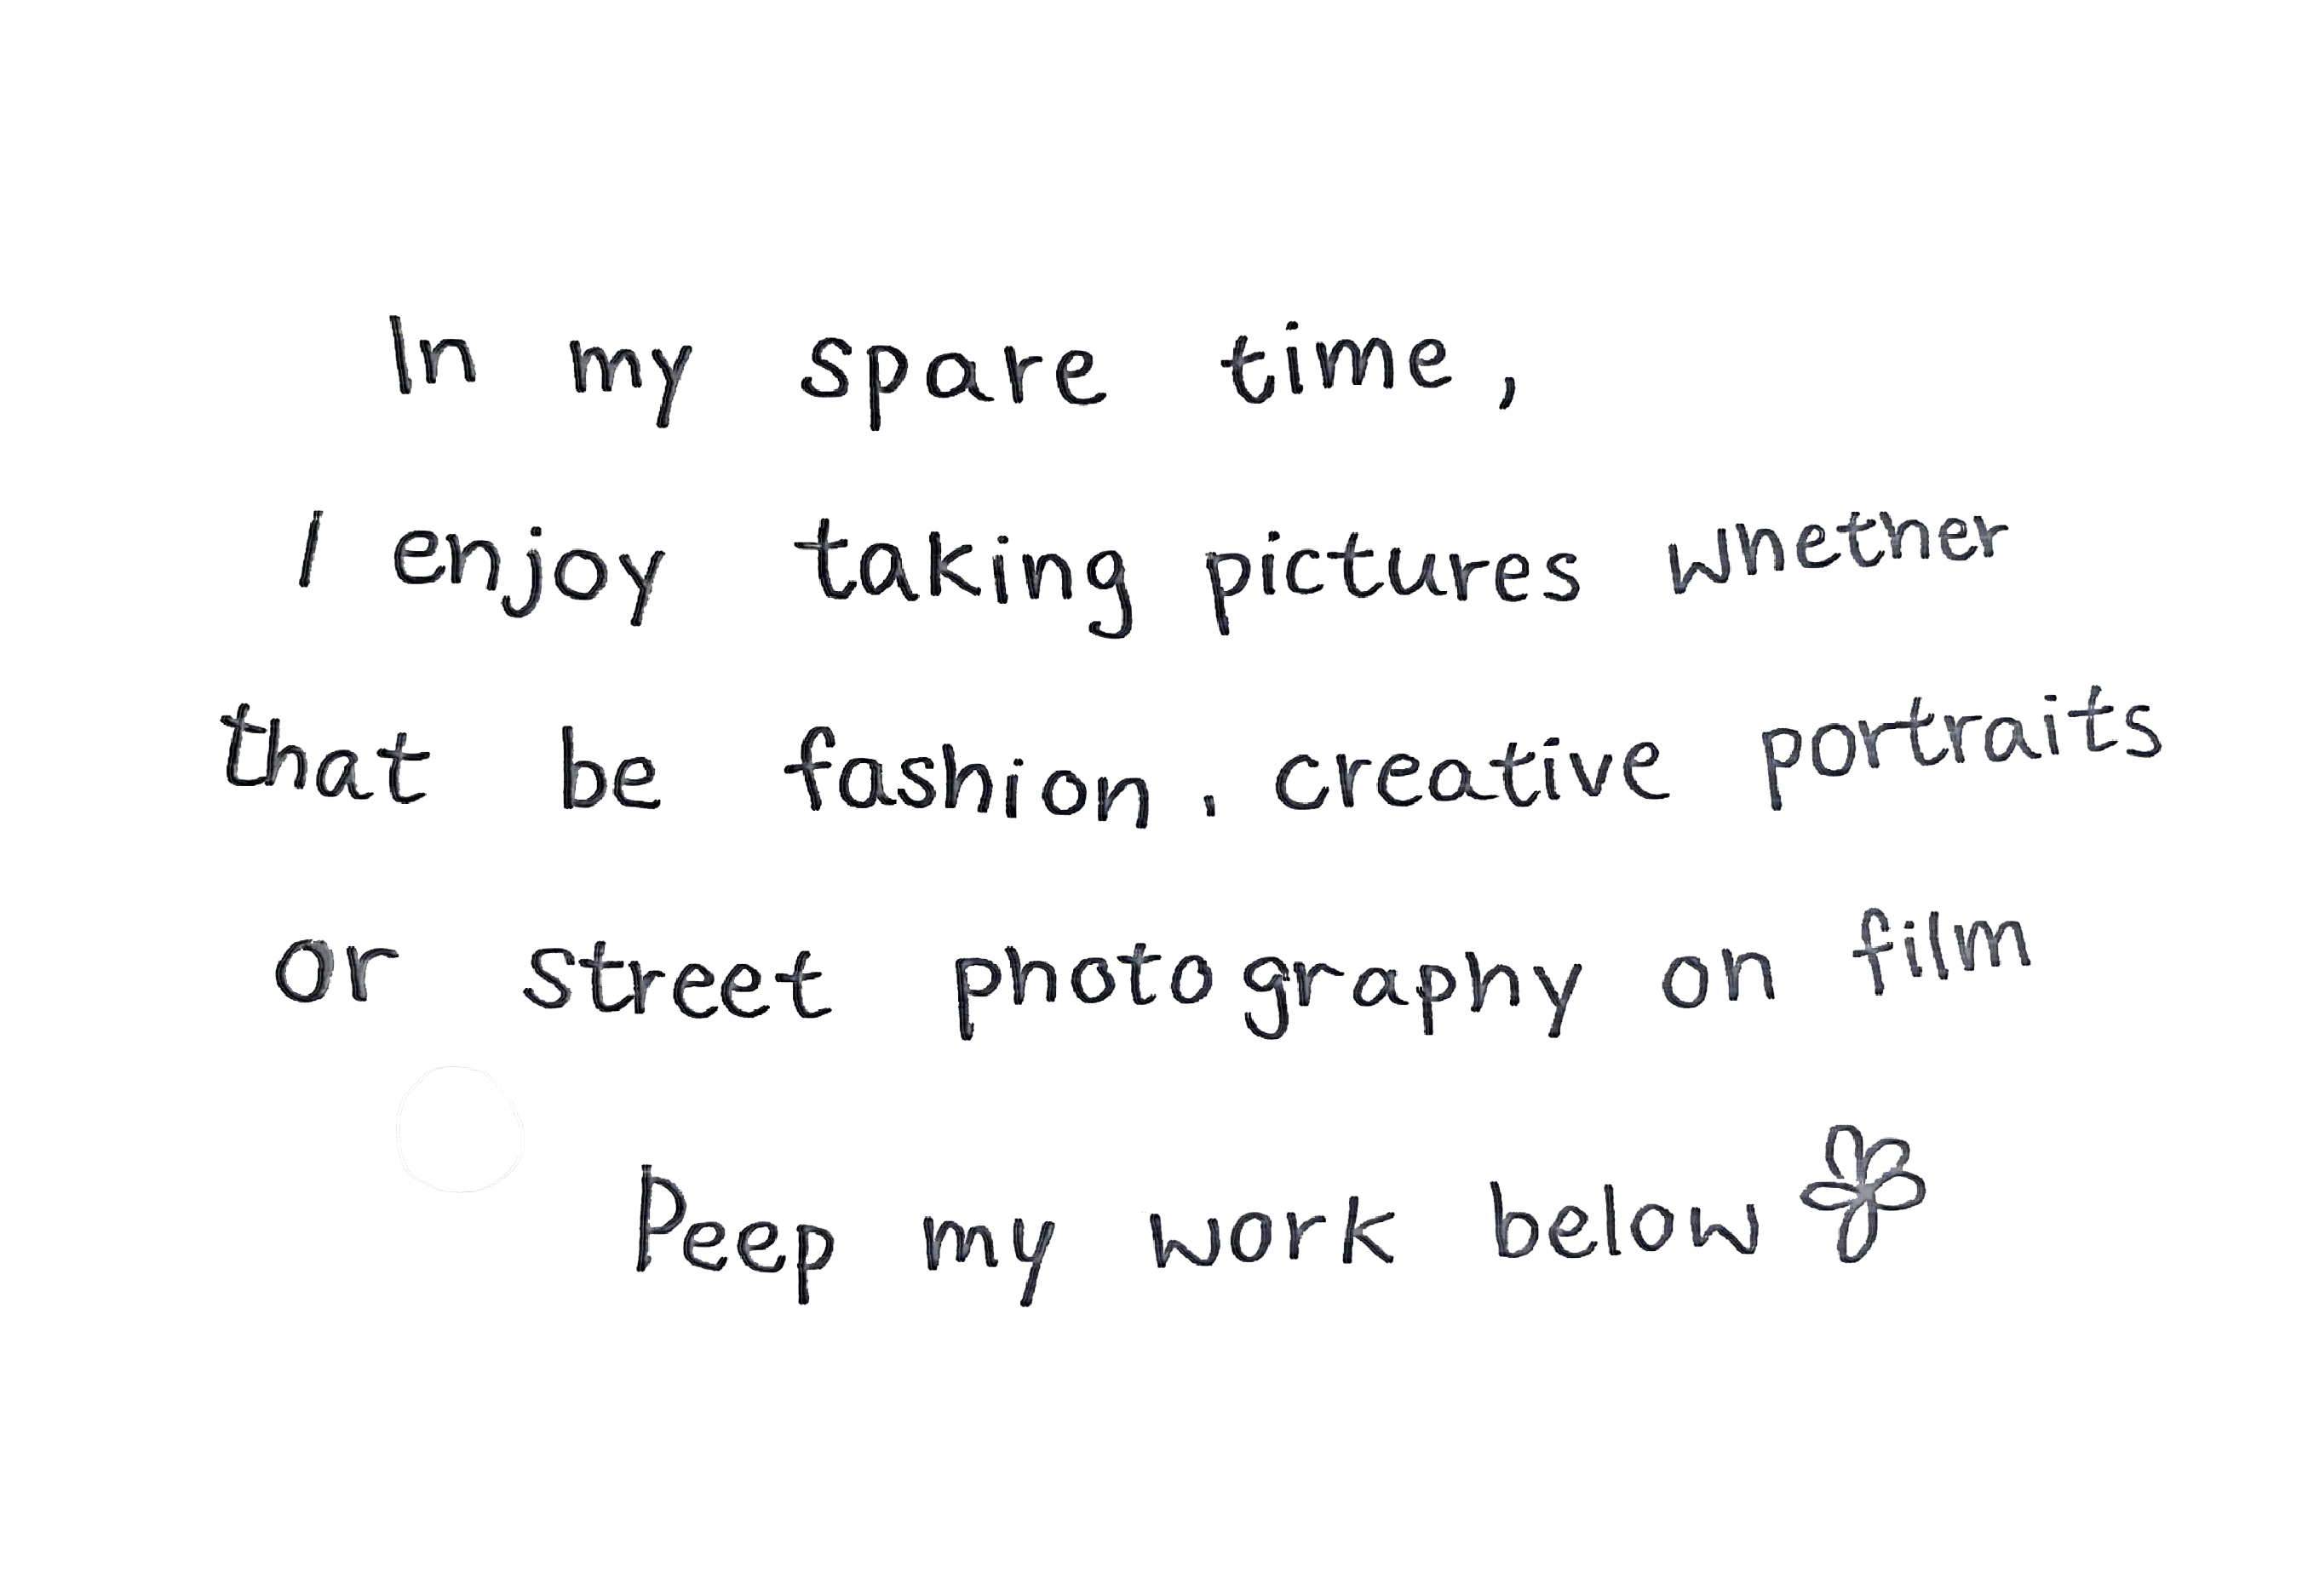 In my spare time,
I enjoy taking pictures whether
that be fashion. creative portraits
or street photography on film
Peep my work below